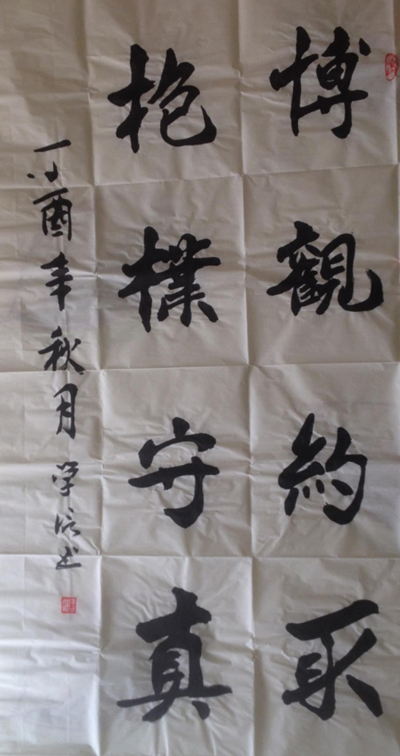 博觀約取
抱樸守真
丁酉年秋月 学信书